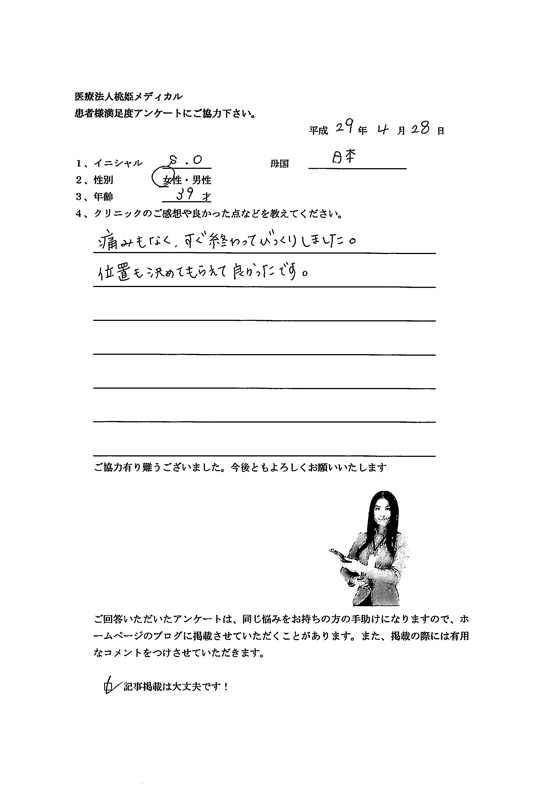 医療法人桃姫メディカル
患者様満足度アンケートにご協力下さい。
平成 29 年 4 月 28 日
1、イニシャル S.O 母国 日本
2、性別 女性・男性
3、年齢 39 才
4、クリニックのご感想や良かった点などを教えてください。
痛みもなく、すぐ終わってびっくりしました。
位置も決めてもらえて良かったです。
ご協力有り難うございました。今後ともよろしくお願いいたします
ご回答いただいたアンケートは、同じ悩みをお持ちの方の手助けになりますので、ホ
ームページのブログに掲載させていただくことがあります。また、掲載の際には有用
なコメントをつけさせていただきます。
記事掲載は大丈夫です！